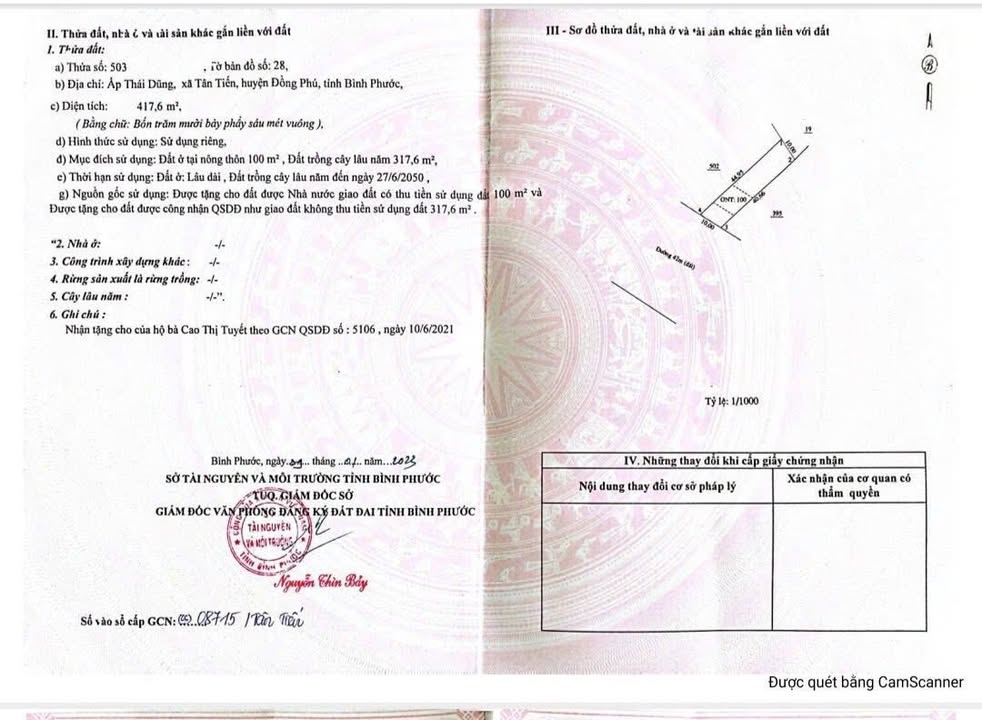 II. Thửa đất, nhà ở và tài sản khác gắn liền với đất
1. Thửa đất:
a) Thửa số: 503 , Tờ bản đồ số: 28,
b) Địa chỉ: Ấp Thái Dũng, xã Tân Tiến, huyện Đồng Phú, tỉnh Bình Phước,
c) Diện tích: 417,6 m²,
( Bằng chữ: Bốn trăm mười bảy phẩy sáu mét vuông ),
d) Hình thức sử dụng: Sử dụng riêng,
đ) Mục đích sử dụng: Đất ở tại nông thôn 100 m² , Đất trồng cây lâu năm 317,6 m²,
e) Thời hạn sử dụng: Đất ở: Lâu dài , Đất trồng cây lâu năm đến ngày 27/6/2050 ,
g) Nguồn gốc sử dụng: Được tặng cho đất được Nhà nước giao đất có thu tiền sử dụng đất 100 m² và
Được tặng cho đất được công nhận QSDĐ như giao đất không thu tiền sử dụng đất 317,6 m² .
"2. Nhà ở: -/-
3. Công trình xây dựng khác : -/-
4. Rừng sản xuất là rừng trồng: -/-
5. Cây lâu năm : -/-".
6. Ghi chú :
Nhận tặng cho của hộ bà Cao Thị Tuyết theo GCN QSDĐ số : 5106 , ngày 10/6/2021
Bình Phước, ngày 09 tháng 01 năm 2023
SỞ TÀI NGUYÊN VÀ MÔI TRƯỜNG TỈNH BÌNH PHƯỚC
TUQ. GIÁM ĐỐC SỞ
GIÁM ĐỐC VĂN PHÒNG ĐĂNG KÝ ĐẤT ĐAI TỈNH BÌNH PHƯỚC
TÀI NGUYÊN
VÀ MÔI TRƯỜNG
TỈNH BÌNH PHƯỚC
Nguyễn Thìn Bảy
Số vào sổ cấp GCN: CS 08715 / Tân Tiến
III - Sơ đồ thửa đất, nhà ở và tài sản khác gắn liền với đất
B
19
1
10.00
2
502
ONT: 100
395
4
10.00
3
Đường 42m (đất)
Tỷ lệ: 1/1000
IV. Những thay đổi khi cấp giấy chứng nhận
Nội dung thay đổi cơ sở pháp lý
Xác nhận của cơ quan có
thẩm quyền
Được quét bằng CamScanner